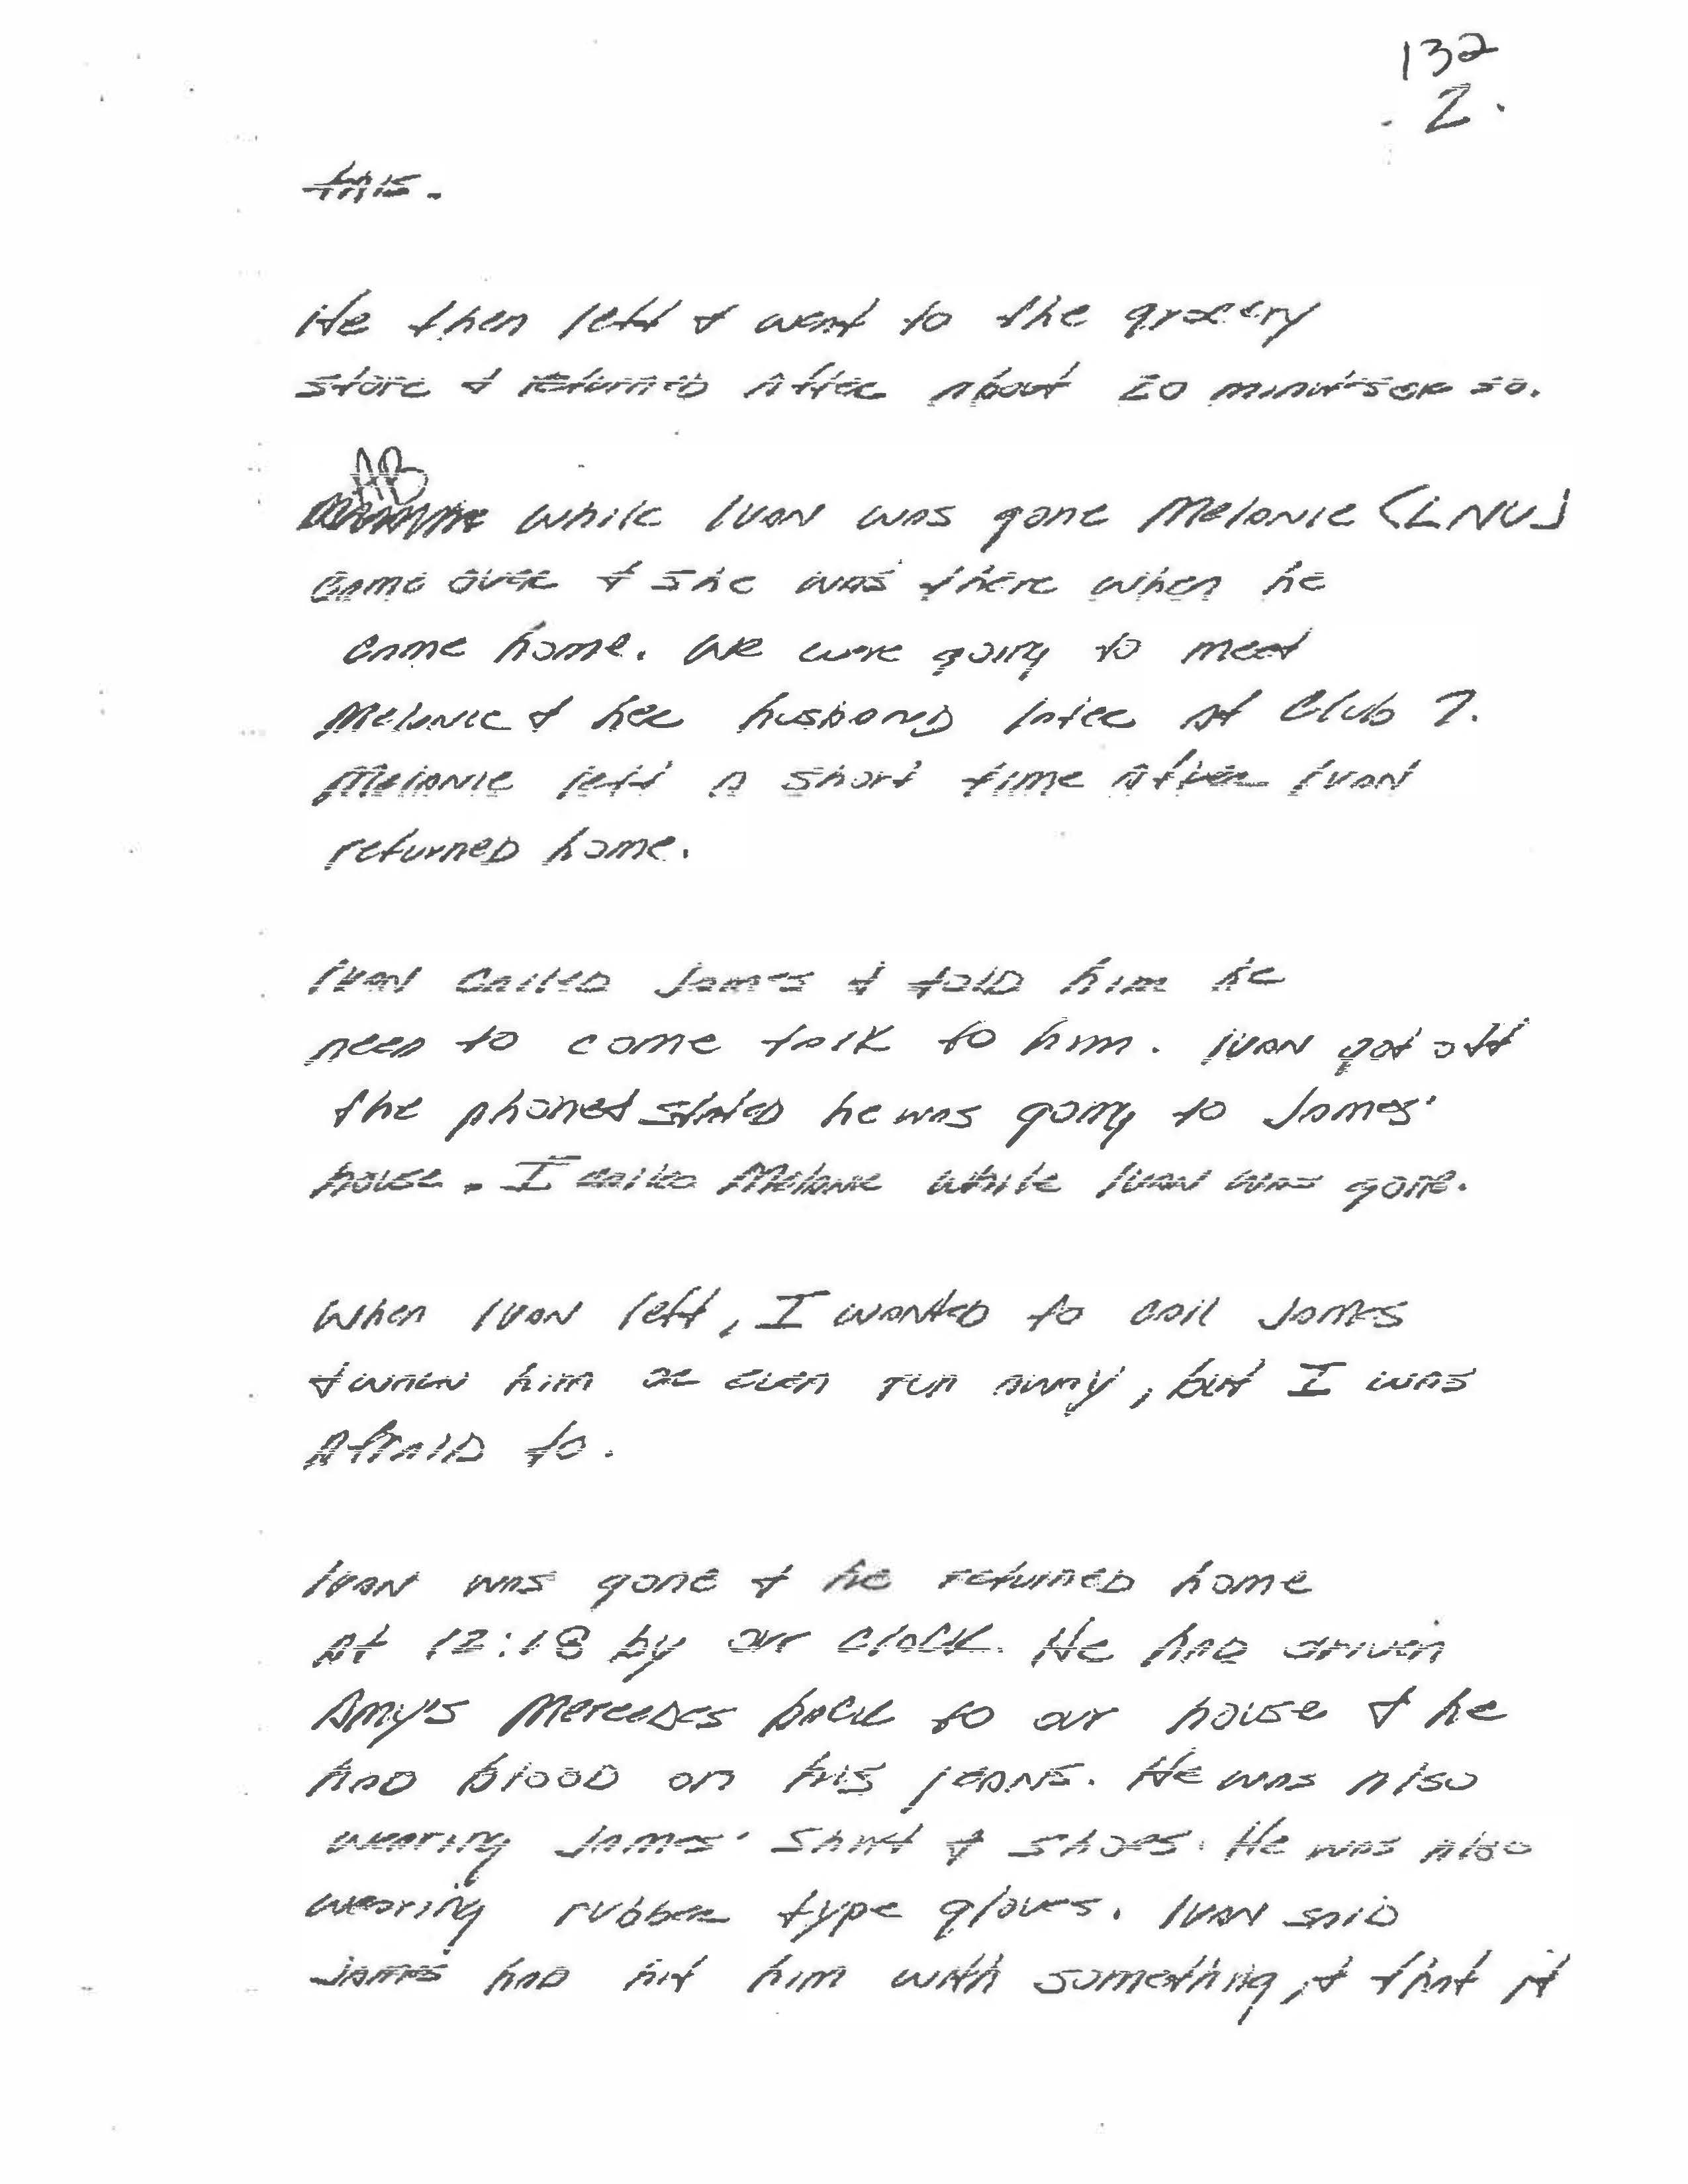 132
2.
this.
He then left & went to the grocery
store & returned after about 20 minutes or so.
AB
while Ivan was gone Melanie (LNU)
came over & she was there when he
came home. We were going to meet
Melanie & her husband later at Club 7.
Melanie left a short time after Ivan
returned home.
Ivan called James & told him he
need to come talk to him. Ivan got off
the phone & stated he was going to James'
house. I called Melanie while Ivan was gone.
When Ivan left, I wanted to call James
& warn him or even run away, but I was
afraid to.
Ivan was gone & he returned home
at 12:18 by our clock. He had driven
Amy's Mercedes back to our house & he
had blood on his jeans. He was also
wearing James' shirt & shoes. He was also
wearing rubber type gloves. Ivan said
James had hit him with something & that it